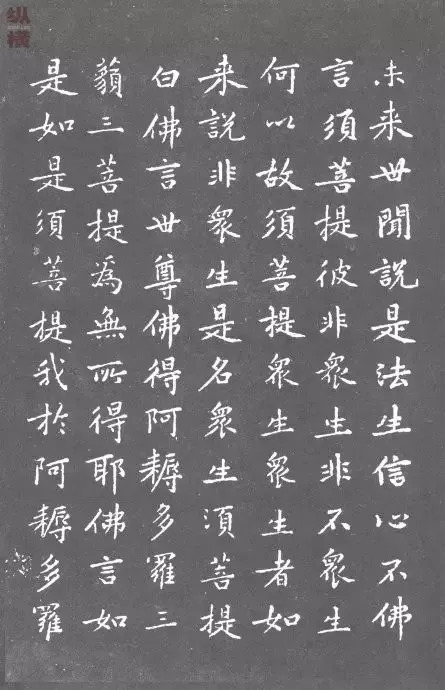 纵
横
未来世聞說是法生信心不佛
言須菩提彼非眾生非不眾生
何以故須菩提眾生眾生者如
来說非眾生是名眾生須菩提
白佛言世尊佛得阿耨多羅三
藐三菩提為無所得耶佛言如
是如是須菩提我於阿耨多羅